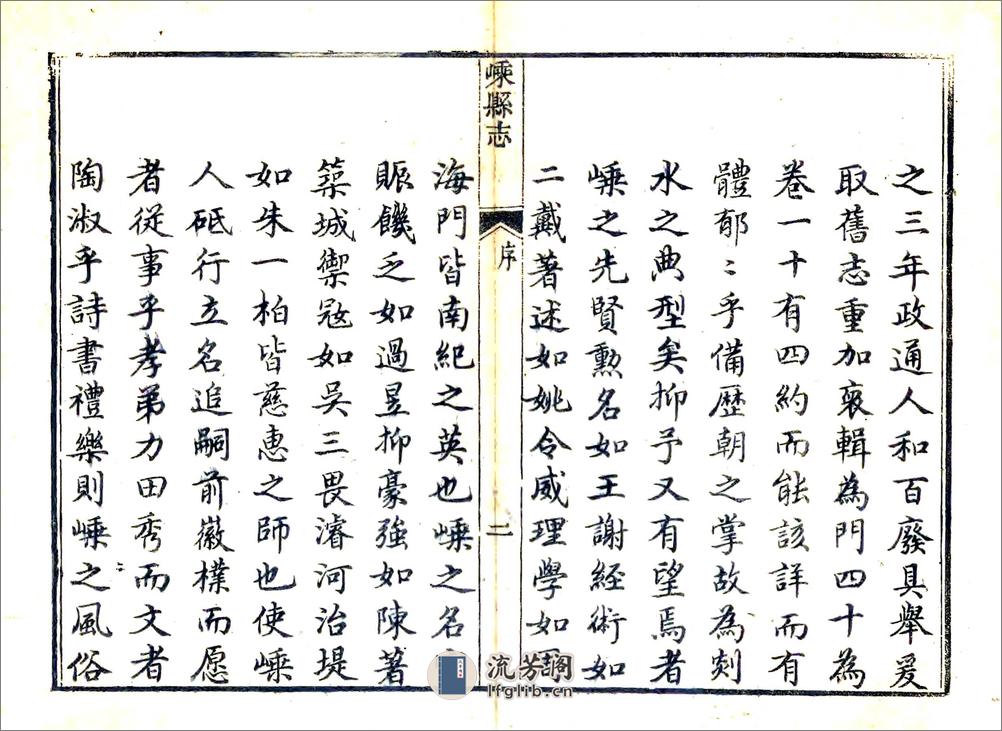 之三年政通人和百廢具舉爰
取舊志重加裒輯為門四十為
卷一十有四約而能該詳而有
體郁〻乎備歷朝之掌故為剡
水之典型矣抑予又有望焉者
嵊之先賢勲名如王謝經術如
二戴著述如姚令威理學如
嵊縣志
序
二
海門皆南紀之英也嵊之名
賑饑乏如過昱抑豪強如陳著
築城禦寇如吳三畏濬河治堤
如朱一柏皆慈惠之師也使嵊
人砥行立名追嗣前徽樸而愿
者從事乎孝弟力田秀而文者
陶淑乎詩書禮樂則嵊之風俗
流芳閣
lfglib.cn